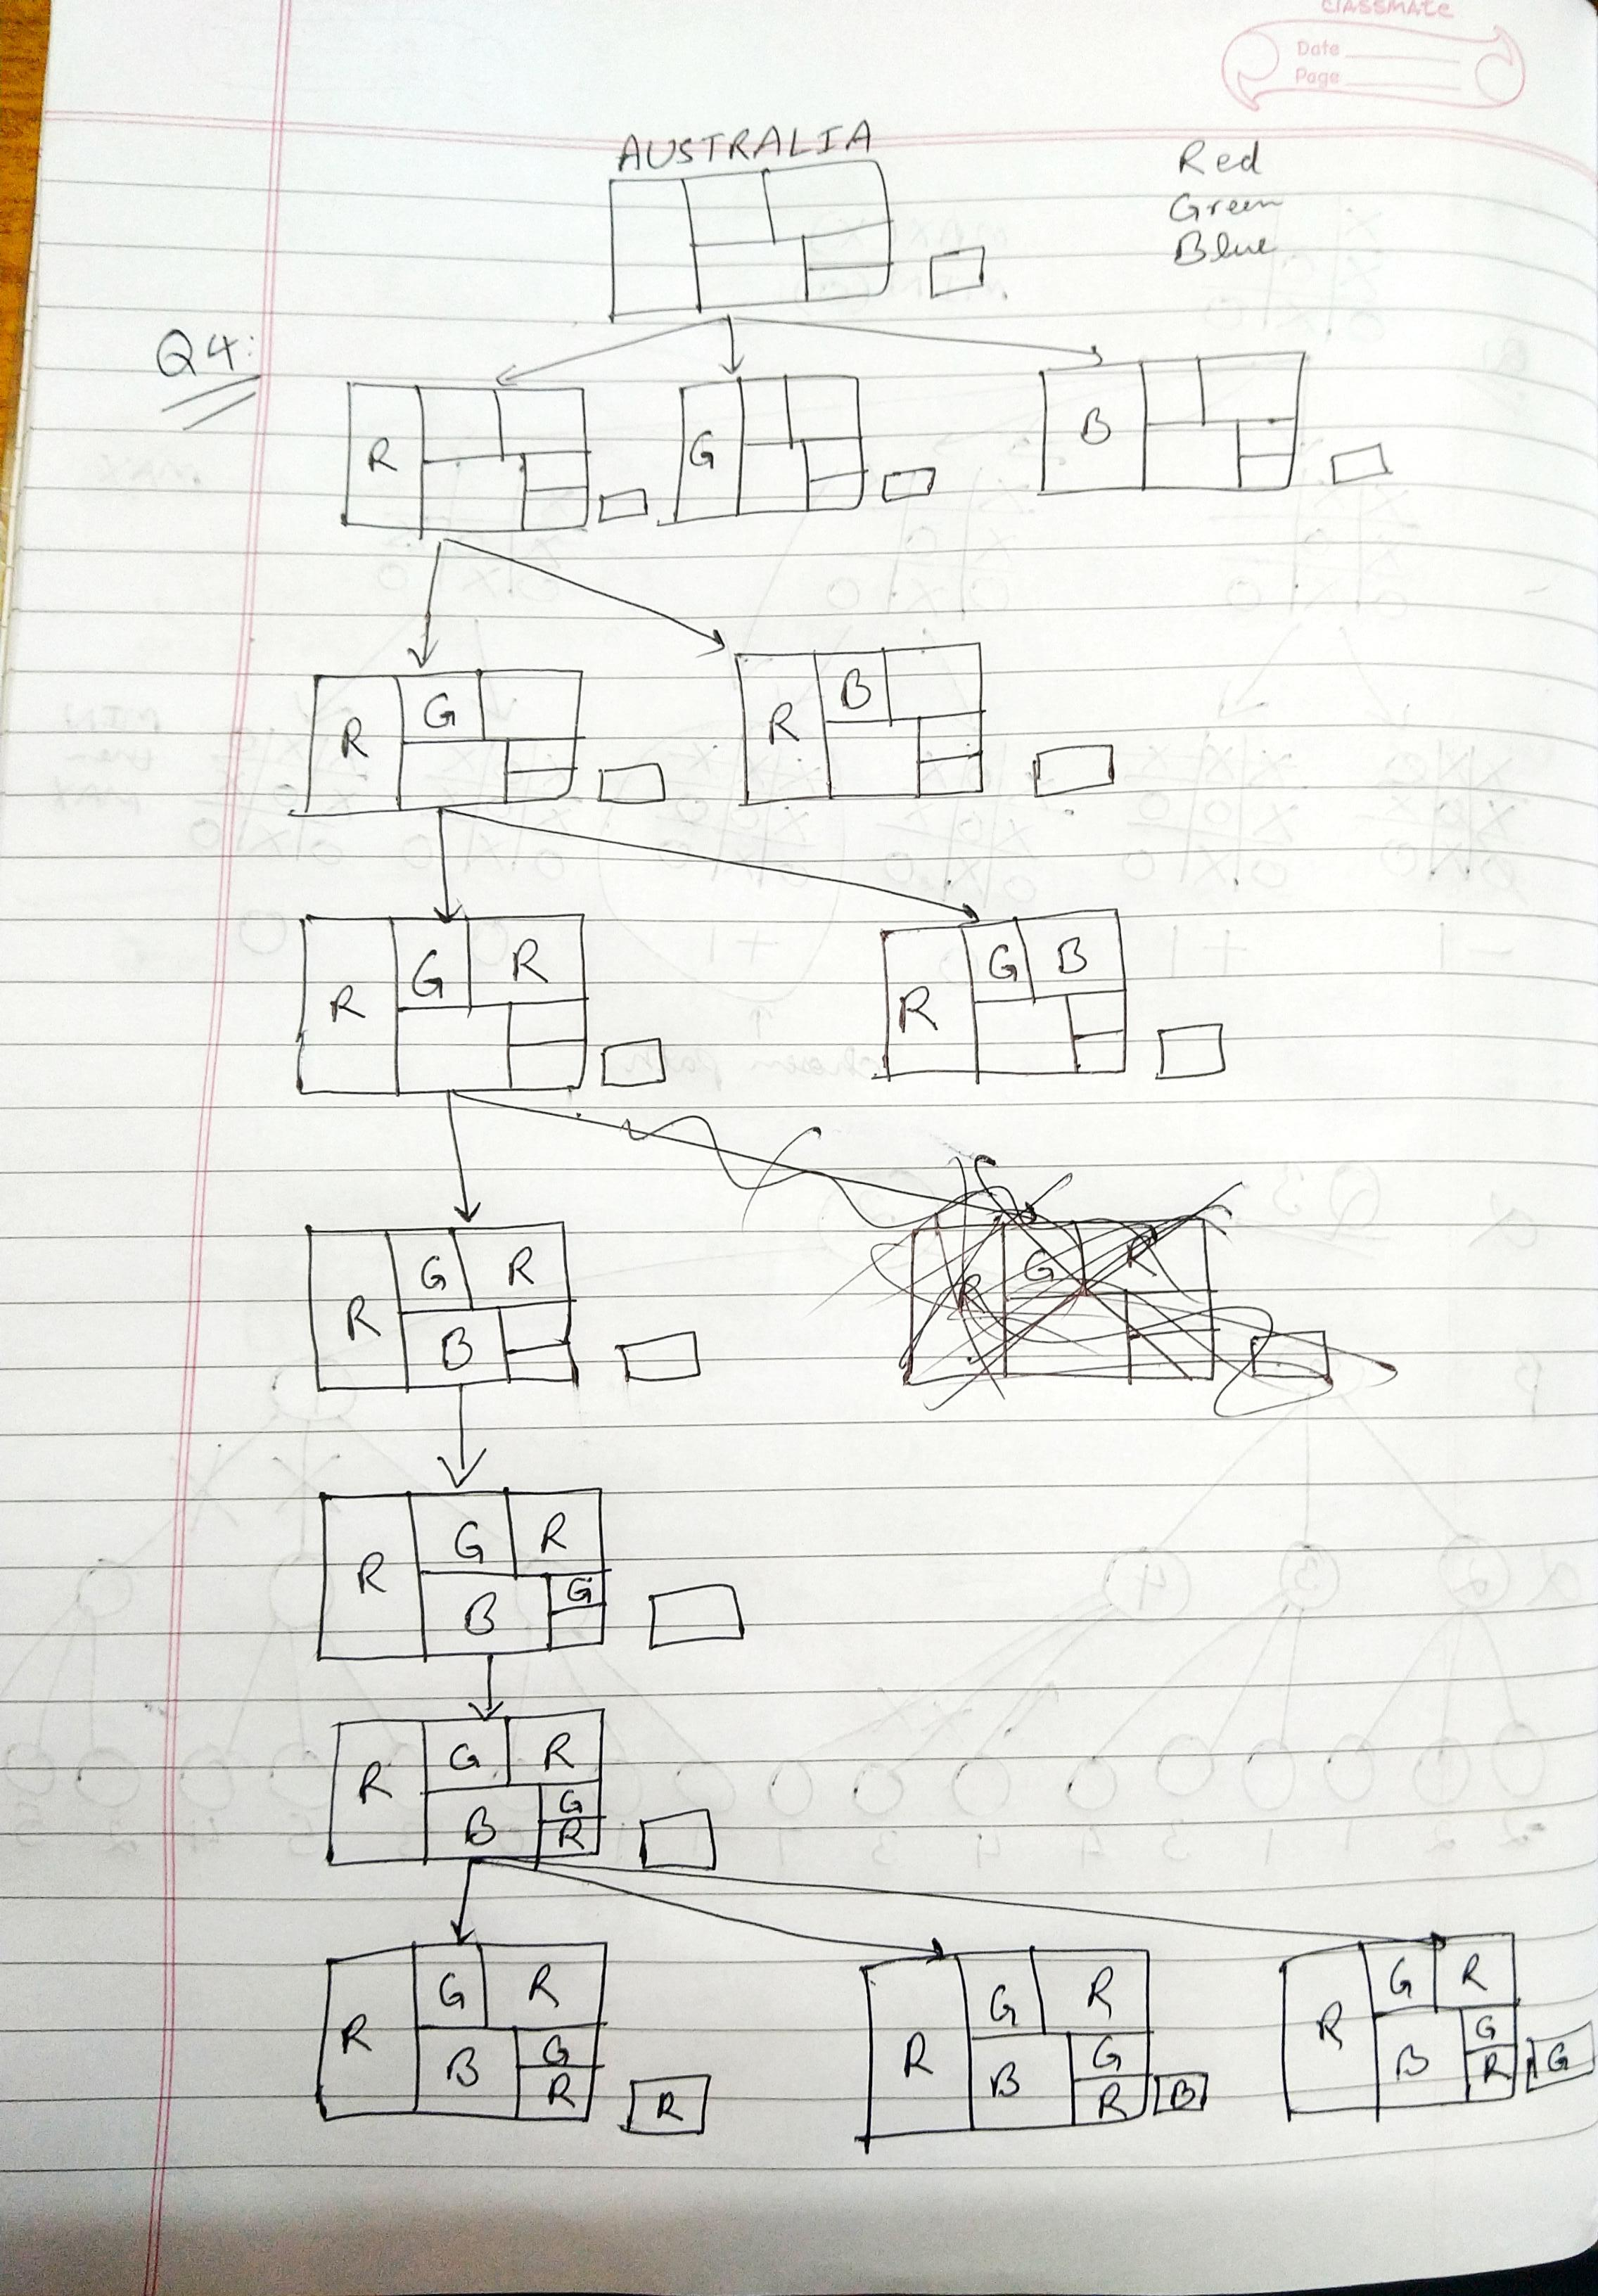 classmate
Date
Page
AUSTRALIA
Red
Green
Blue
Q4:
R
G
B
R G
R B
R G R
R G B
R G R
B
R G R
R G R
B G
R G R
B G
R
R G R
B G
R R
R G R
B G
R B
R G R
B G
R G